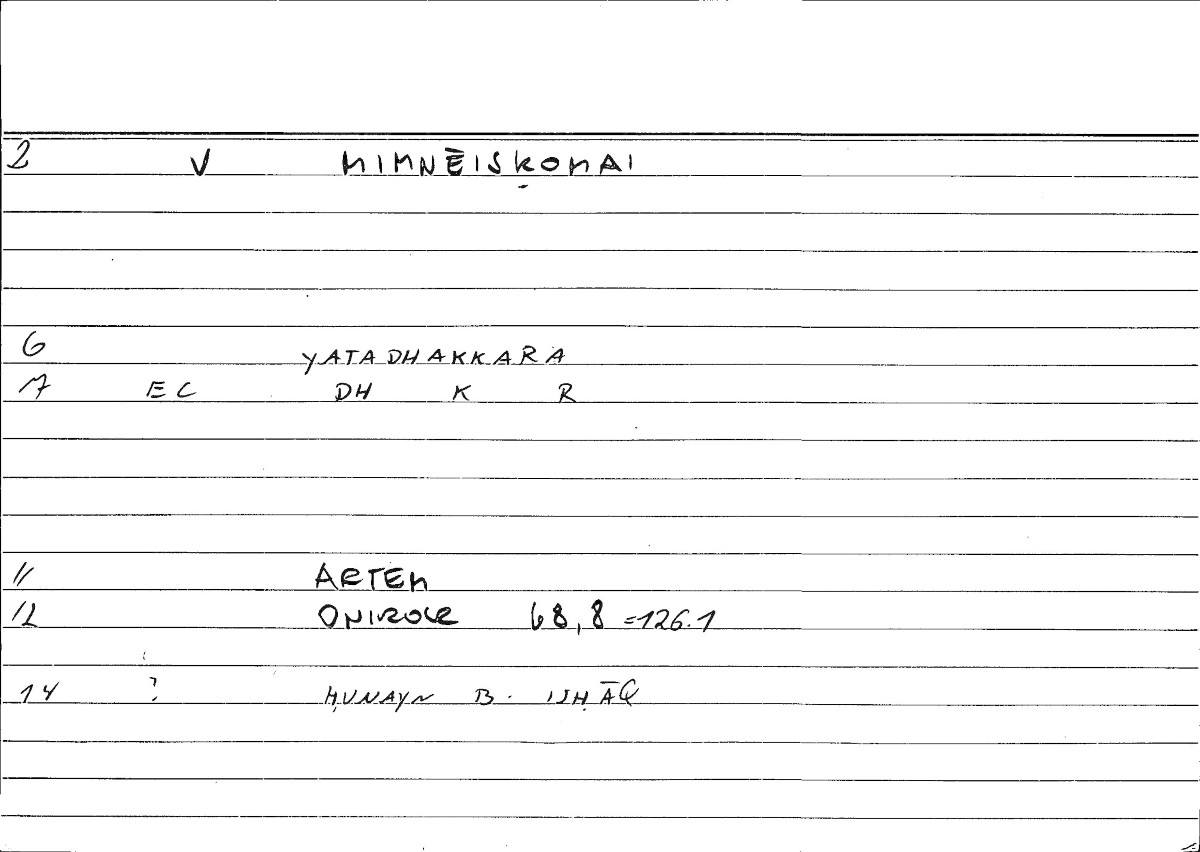 2 V MIMNĒISKOMAI
6 YATADHAKKARA
7 EC DH K R
11 ARTEM
12 ONIROCR 68,8 =126.1
14 ? ḤUNAYN B. ISḤĀQ